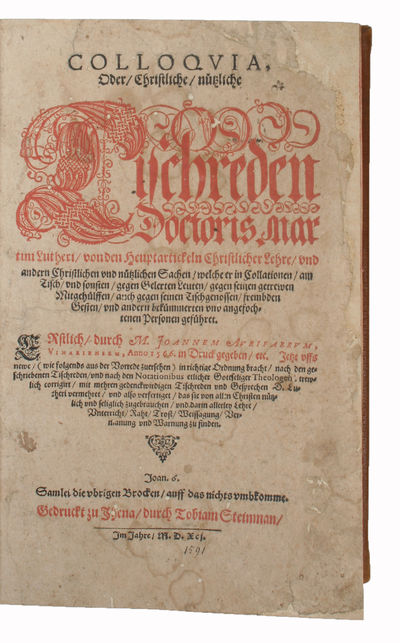 COLLOQVIA,
Oder/ Christliche/ nützliche
Tischreden
Doctoris. Mar
tini Lutheri/ von den Heuptartickeln Christlicher Lehre/ vnd
andern Christlichen vnd nützlichen Sachen/ welche er in Collationen/ am
Tisch/ vnd sonsten/ gegen Gelerten Leuten/ gegen seinen getrewen
Mitgehülffen/ auch gegen seinen Tischgenossen/ frembden
Gesten/ vnd andern bekümmerten vnd angefoch-
tenen Personen geführet.
ERstlich/ durch M. JOANNEM AVRIFABRVM,
VINARIENSEM, Anno 1566. in Druck gegeben/ etc. Jetzt vffs
newe/ (wie folgends aus der Vorrede zuersehen) in richtige Ordnung bracht/ nach den ge-
schriebenen Tischreden/ vnd nach den Notationibus etlicher Gottseliger Theologen/ trew-
lich corrigirt/ mit mehren gedenckwirdigen Tischreden vnd Gesprechen D. Lu-
theri vermehret/ vnd also verfertiget/ das sie von allen Christen nütz-
lich vnd seliglich zugebrauchen/ vnd darin allerley Lehre/
Vnterricht/ Raht/ Trost/ Weissagung/ Ver-
manung vnd Warnung zu finden.
Joan. 6.
Samlet die vbrigen Brocken/ auff das nichts vmbkomme.
Gedruckt zu Jhena/ durch Tobiam Steinman/
Im Jahre/ M. D. Xcj.
1591